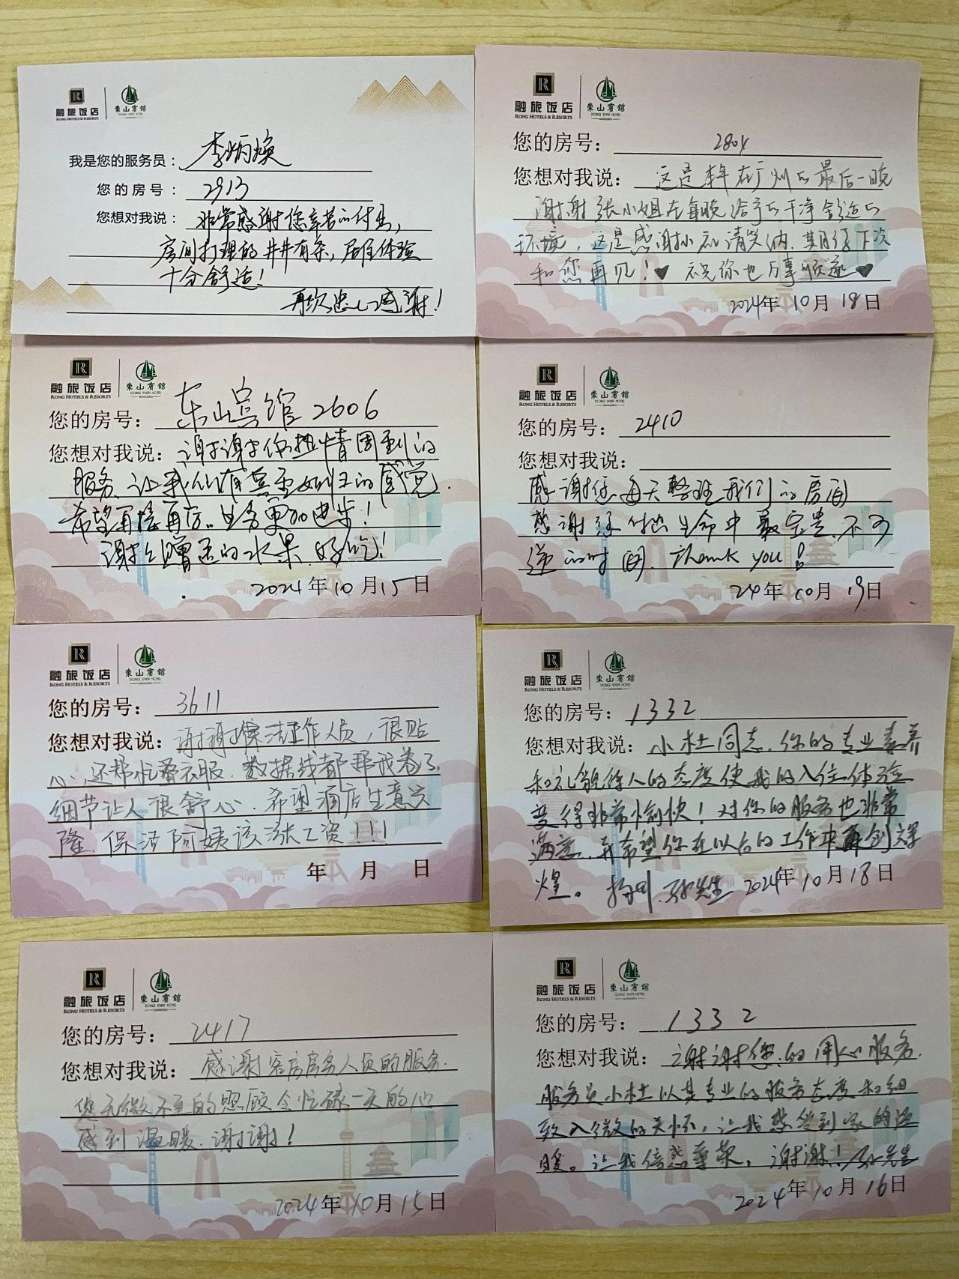 融旅饭店
RONG HOTELS & RESORTS
東山賓館
DONG SHAN HOTEL
我是您的服务员：李炳焕
您的房号：2913
您想对我说：非常感谢您辛苦的付出，
房间打理的井井有条，居住体验
十分舒适！
再次忠心感谢！
融旅饭店
RONG HOTELS & RESORTS
東山賓館
DONG SHAN HOTEL
您的房号：2804
您想对我说：这是本年在广州的最后一晚
谢谢张小姐在每晚给予的干净舒适的
环境，这是感谢小礼请笑纳，期待下次
和您再见！♥ 祝你也万事顺遂♥
2024年10月18日
融旅饭店
RONG HOTELS & RESORTS
東山賓館
DONG SHAN HOTEL
您的房号：东山宾馆2606
您想对我说：谢谢你热情周到的
服务、让我们有宾至如归的感觉．
希望再接再厉。业务更加进步！
谢谢赠送的水果，好吃！
2024年10月15日
融旅饭店
RONG HOTELS & RESORTS
東山賓館
DONG SHAN HOTEL
您的房号：2410
您想对我说：
感谢您每天整理我们的房间
感谢你付出生命中最宝贵、不可
逆的时间．Thank you！
24年10月19日
融旅饭店
RONG HOTELS & RESORTS
東山賓館
DONG SHAN HOTEL
您的房号：3611
您想对我说：谢谢保洁工作人员，很贴
心，还帮忙叠衣服．数据线都帮我卷了
细节让人很舒心．希望酒店生意兴
隆．保洁阿姨该涨工资！！！
年 月 日
融旅饭店
RONG HOTELS & RESORTS
東山賓館
DONG SHAN HOTEL
您的房号：1332
您想对我说：小杜同志，你的专业素养
和礼貌待人的态度使我的入住体验
变得非常愉快！对你的服务也非常
满意，并希望你在以后的工作中再创辉
煌。扬州．孙先生 2024年10月18日
融旅饭店
RONG HOTELS & RESORTS
東山賓館
DONG SHAN HOTEL
您的房号：2417
您想对我说：感谢客房服务人员的服务．
您无微不至的照顾令忙碌一天的心
感到温暖．谢谢！
2024年10月15日
融旅饭店
RONG HOTELS & RESORTS
東山賓館
DONG SHAN HOTEL
您的房号：1332
您想对我说：谢谢您的用心服务．
服务员小杜以其专业的服务态度和细
致入微的关怀，让我感觉到家的温
暖。让我倍感尊荣，谢谢！孙先生
2024年10月16日